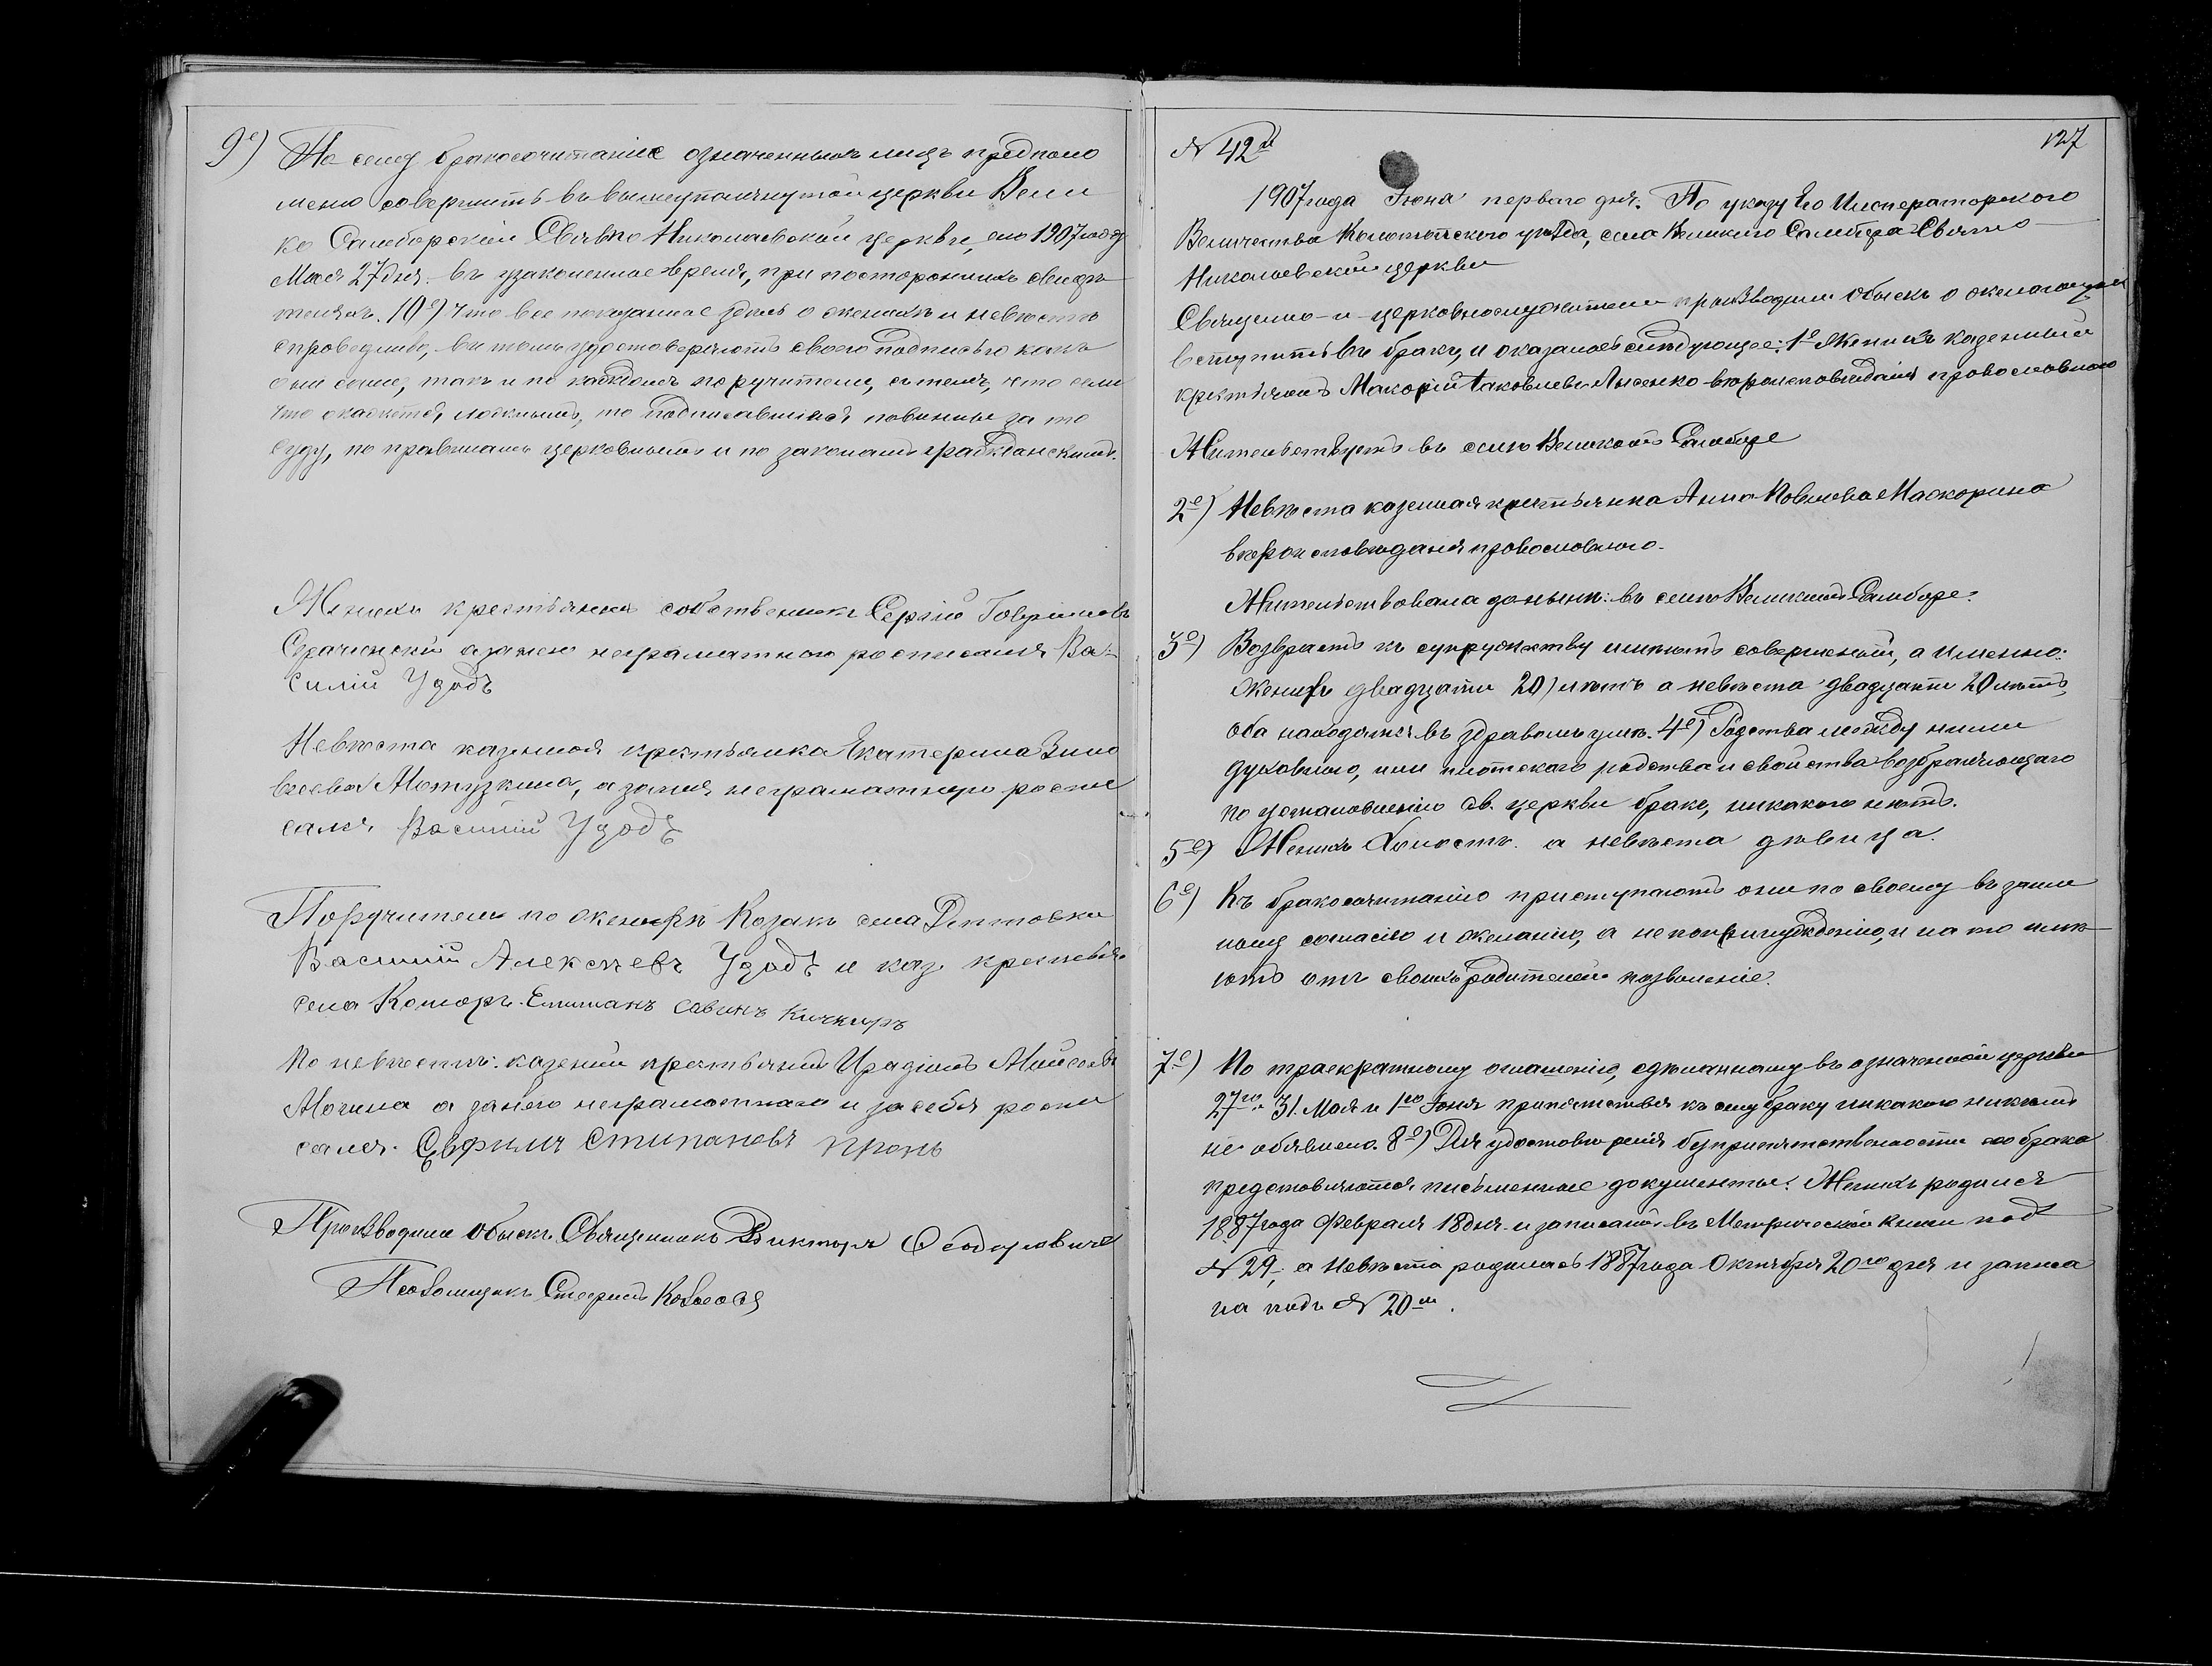 9е) По сему бракосочитаніе означенныхъ лицъ предполо
жено совершить въ вышеупомянутой церкви Вели
ко Самборской Свято Николаевской церкви, сего 1907 году
Мая 27 дня. въ узаконенное время, при постороннихъ свидѣ
теляхъ. 10е) Что все показанное здѣсь о женихѣ и невѣстѣ
справедливо, въ томъ удостоверяютъ своею подписью какъ
они сами, такъ и по каждомъ поручители, съ темъ, что если
что окажется ложнымъ, то подписавшіеся повинны за то
суду, по правиламъ церковнымъ и по законамъ гражданскимъ.
Женихъ крестьянинъ собственникъ Сергій Гавриловъ
а занего неграматнаго росписался Ва-
силій Удодъ
Невѣста казенная крестьянка Екатерина Зино
вьева Мотузкина, а занея неграматную роспи
сался Василій Удодъ
Поручители по женихѣ Козакъ села Дептовки
Василій Алексѣевъ Удодъ и каз. крестья.
села Савинъ
По невѣстѣ: казений крестьянинъ Моисеевъ
Могила а занего неграматнаго и засебя роспи
сался. Евфимъ Стипановъ Пронь
Производили обыскъ. Священникъ Викторъ Ѳеодоровичъ
Псаломщикъ
127
№ 42й
1907 года Іюня первого дня. По указу Его Императорского
Величества Конотопского уѣзда, села Великого Самбора Свято-
Николаевской церкви
Священно-и-церковнослужители производили обыскъ о желающемъ
вступить въ бракъ, и оказалось следующее: 1е Женихъ казенный
крестьянинъ Макарій Іаковлевъ Лысенко вѣроисповѣданія православного
Жительствуетъ въ селѣ Великомъ Самборе
2е) Невѣста казенная крестьянка Анна Павлова Маскорина
вѣроисповѣданія православного.
Жительствовала доныне: въ селѣ Великомъ Самборе.
3е) Возврастъ къ супружеству имѣютъ совершеный, а именно:
женихъ двадцати 20) лѣтъ а невѣста двадцати 20 лѣтъ,
оба находятся въ здравомъ умѣ. 4е) Родства между ними
духовного, или плотского родства и свойства возбраняющаго
по установленію св. церкви бракъ, никакого нѣтъ.
5е) Женихъ Холостъ. а невѣста дѣвица.
6е) Къ бракосочитанію приступаютъ они по своему взаим
ному согласію и желанію, а не по принужденію, и на то имѣ
ютъ отъ своихъ родителей позволеніе.
7е) По троекратному оглашенію, сдѣланному въ означеной церкви
27го 31. Мая и 1го Іюня препятствія къ сему браку никакого никемъ
не обявлено. 8е) Для удостоверенія безпрепятственности сего брака
представляются письменные документы: Женихъ родился
1887 года Февраля 18 дня и записанъ въ Метрической книги подъ
№ 29, а Невѣста родилась 1887 года Октября 20го дня и записа
на подъ № 20м.